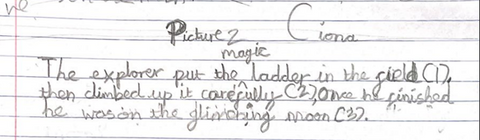 Picture 2 Ciona
magic
The explorer put the ladder in the field (1),
then climbed up it carefully (2), Once he finished
he was on the glimobing moon (3).